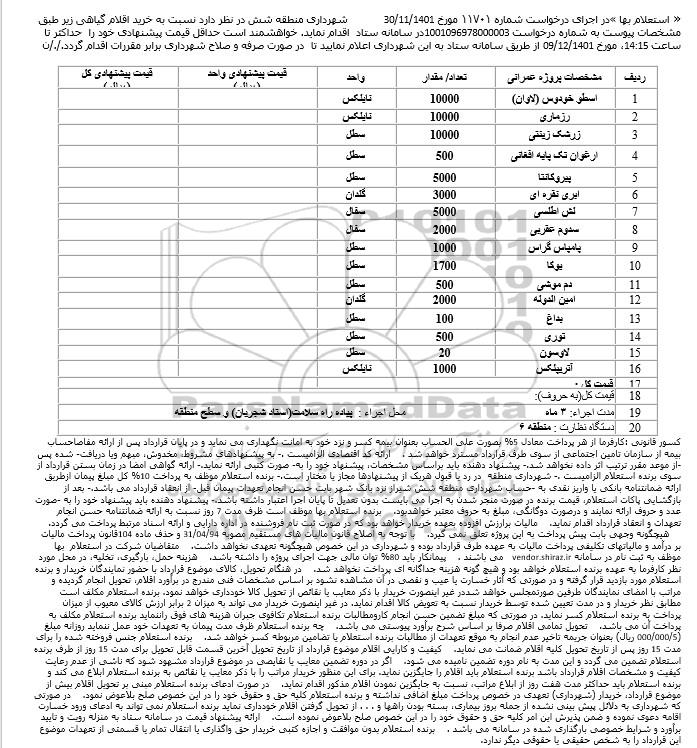 « استعلام بها »در اجرای درخواست شماره ۱۱۷۰۱ مورخ 30/11/1401 شهرداری منطقه شش در نظر دارد نسبت به خرید اقلام گیاهی زیر طبق
مشخصات پیوست به شماره درخواست 1001096978000003در سامانه ستاد اقدام نماید. خواهشمند است حداقل قیمت پیشنهادی خود را حداکثر تا
ساعت 14:15، مورخ 09/12/1401 از طریق سامانه ستاد به این شهرداری اعلام نمایید تا در صورت صرفه و صلاح شهرداری برابر مقررات اقدام گردد./ن/
ردیف مشخصات پروژه عمرانی تعداد/ مقدار واحد قیمت پیشنهادی واحد (ریال) قیمت پیشنهادی کل (ریال)
1 اسطو خودوس (لاوان) 10000 نایلکس
2 رزماری 10000 نایلکس
3 زرشک زینتی 10000 سطل
4 ارغوان تک پایه افغانی 500 سطل
5 پیروکانتا 5000 سطل
6 ابری نقره ای 3000 گلدان
7 لش اطلسی 5000 سفال
8 سدوم عقربی 2000 سفال
9 پامپاس گراس 1000 سطل
10 یوکا 1700 سطل
11 دم موشی 500 سطل
12 امین الدوله 2000 گلدان
13 بداغ 100 سطل
14 توری 500 سطل
15 لاوسون 20 سطل
16 آتریپلکس 1000 نایلکس
17 قیمت کل :
18 قیمت کل(به حروف):
19 مدت اجراء: ۳ ماه محل اجراء : پیاده راه سلامت(استاد شجریان) و سطح منطقه
20 دستگاه نظارت : منطقه ۶
کسور قانونی :کارفرما از هر پرداخت معادل 5% بصورت علی الحساب بعنوان بیمه کسر و نزد خود به امانت نگهداری می نماید و در پایان قرارداد پس از ارائه مفاصاحساب
بیمه از سازمان تامین اجتماعی از سوی طرف قرارداد مسترد خواهد شد. ارائه کد اقتصادی الزامیست .- به پیشنهادهای مشروط، مخدوش، مبهم ویا دریافت- شده پس
-از موعد مقرر ترتیب اثر داده نخواهد شد.- پیشنهاد دهنده باید براساس مشخصات، پیشنهاد خود را به- صورت کتبی ارائه نماید.- ارائه گواهی امضا در زمان بستن قرارداد از
سوی برنده استعلام الزامیست .- شهرداری منطقه در رد یا قبول هریک از پیشنهادها مجاز یا مختار است.- برنده استعلام موظف به پرداخت 10% کل مبلغ پیمان ازطریق
ارائه ضمانتنامه بانکی یا واریز نقدی به حساب شهرداری منطقه شش شیراز نزد بانک شهر بابت حسن انجام تعهدات پیمان قبل- از انعقاد قرارداد می باشد.- بعد از
بازگشایی پاکات استعلام، قیمت برنده در صورت منجر شدن به اجرا می بایست بدون تعدیل تا پایان اجرا اعتبار داشته باشد.- پیشنهاد دهنده باید پیشنهاد خود را به -صورت
عدد و حروف ارائه نمایند و درصورت دوگانگی، مبلغ به حروف معتبر خواهدبود. برنده استعلام بها موظف است ظرف مدت 7 روز نسبت به ارائه ضمانتنامه حسن انجام
تعهدات و انعقاد قرارداد اقدام نماید. مالیات برارزش افزوده بعهده خریدار خواهد بود که در صورت ثبت نام فروشنده در اداره دارایی و ارائه اسناد مربوط پرداخت می گردد.
هیچگونه وجهی بابت پیش پرداخت به این پروژه تعلق نمی گیرد. با توجه به اصلاح قانون مالیات های مستقیم مصوبه 31/04/94 و حذف ماده 104قانون پرداخت مالیات
بر درآمد و مالیاتهای تکلیفی پرداخت مالیات به عهده طرف قرارداد بوده و شهرداری در این خصوص هیچگونه تعهدی نخواهد داشت. متقاضیان شرکت در استعلام بها
موظف به ثبت نام در سامانه vendor.shiraz.ir می باشند . پیمانکار باید 80% توان مالی جهت اجرای پروژه را داشته باشد. هزینه حمل، بارگیری، تخلیه، در محل مورد
نظر کارفرما به عهده برنده استعلام خواهد بود و هیچ گونه هزینه جداگانه ای پرداخت نخواهد شد. در هنگام تحویل، کالای موضوع قرارداد با حضور نمایندگان خریدار و برنده
استعلام مورد بازدید قرار گرفته و در صورتی که آثار خسارت یا عیب و نقصی در آن مشاهده نشود بر اساس مشخصات فنی مندرج در برآورد اقلام، تحویل انجام گردیده و
مراتب با امضای نمایندگان طرفین صورتمجلس خواهد شددر غیر اینصورت خریدار با ذکر معایب یا نقائص از تحویل کالا خودداری خواهد نمود. برنده استعلام مکلف است
مطابق نظر خریدار و در مدت تعیین شده توسط خریدار نسبت به تعویض کالا اقدام نماید، در غیر اینصورت خریدار می تواند به میزان 2 برابر ارزش کالای معیوب از میزان
پرداخت به برنده استعلام کسر نماید. در صورتی که مبلغ تضمین حسن انجام کارومطالبات برنده استعلام تکافوی جبران هزینه های فوق راننماید برنده استعلام مکلف به
پرداخت آن می باشد. تحویل تمامی اقلام صرفا بر اساس شرح برآورد پیوستی می باشد. چه برنده استعلام ظرف مدت پیمان به تعهدات خود عمل ننماید روزانه مبلغ
(000/000/5 ریال) بعنوان جریمه تاخیر عدم انجام به موقع تعهدات از مطالبات برنده استعلام یا تضامین مربوطه کسر خواهد شد. برنده استعلام جنس فروخته شده را برای
مدت 15 روز پس از تاریخ تحویل کلیه اقلام ضمانت می نماید. کیفیت و کارایی اقلام موضوع قرارداد از تاریخ تحویل آخرین قسمت قابل تحویل برای مدت 15 روز از طرف برنده
استعلام تضمین می گردد و این مدت به نام دوره تضمین نامیده می شود. اگر در دوره تضمین معایب یا نقایصی در موضوع قرارداد مشهود شود که ناشی از عدم رعایت
کیفیت و مشخصات اقلام قرارداد باشد برنده استعلام باید اقلام را جایگزین نماید. برای این منظور خریدار مراتب را با ذکر معایب یا نقائص به برنده استعلام ابلاغ می کند و
برنده استعلام باید حداکثر مدت هفت روز از ابلاغ مراتب، نسبت به جایگزین نمودن اقلام مذکور اقدام نماید. در صورت ادعای برنده استعلام مبنی بر تحویل اقلام بیش از
موضوع قرارداد، خریدار (شهرداری) تعهدی در خصوص پرداخت مبلغ اضافی نداشته و برنده استعلام کلیه حق و حقوق خود را در این خصوص صلح بلاعوض نمود. در صورتی
که شهرداری به دلائل پیش بینی نشده از جمله بروز بیماری، بسته بودن راهها و . . . از تحویل گرفتن اقلام خودداری نماید برنده استعلام نمی تواند به ادعای ورود خسارت
اقامه دعوی نموده و ضمن پذیرش این امر کلیه حق و حقوق خود را در این خصوص صلح بلاعوض نموده است. ارائه پیشنهاد قیمت در سامانه ستاد به منزله رویت و تایید
برآورد و شرایط خصوصی بارگذاری شده در سامانه می باشد . برنده استعلام بدون موافقت و اجازه کتبی خریدار حق واگذاری یا انتقال تمام یا قسمتی از تعهدات موضوع
این قرارداد را به شخص حقیقی یا حقوقی دیگر ندارد.